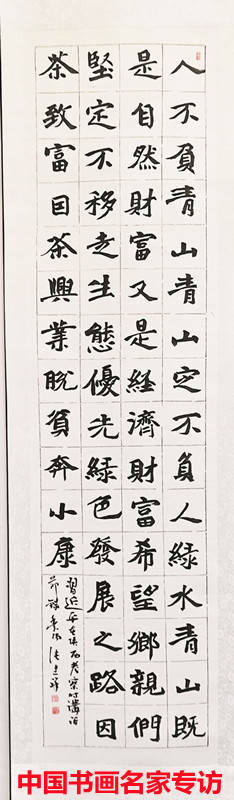 人不負青山青山定不負人綠水青山既
是自然財富又是經濟財富希望鄉親們
堅定不移走生態優先綠色發展之路因
茶致富因茶興業脫貧奔小康
習近平在陝西考察時講話
中国书画名家专访